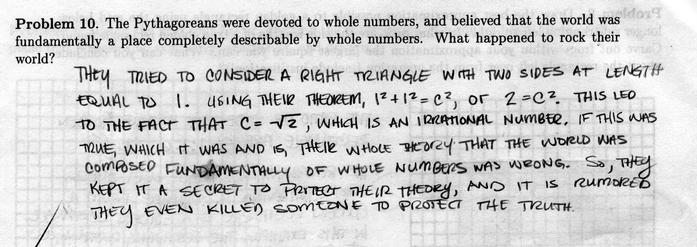 Problem 10. The Pythagoreans were devoted to whole numbers, and believed that the world was
fundamentally a place completely describable by whole numbers. What happened to rock their
world?
THEY TRIED TO CONSIDER A RIGHT TRIANGLE WITH TWO SIDES AT LENGTH
EQUAL TO 1. USING THEIR THEOREM, 1²+1²=C², or 2=C². THIS LED
TO THE FACT THAT C= √2, WHICH IS AN IRRATIONAL NUMBER. IF THIS WAS
TRUE, WHICH IT WAS AND IS, THEIR WHOLE THEORY THAT THE WORLD WAS
COMPOSED FUNDAMENTALLY OF WHOLE NUMBERS WAS WRONG. So, THEY
KEPT IT A SECRET TO PROTECT THEIR THEORY, AND IT IS RUMORED
THEY EVEN KILLED SOMEONE TO PROTECT THE TRUTH.